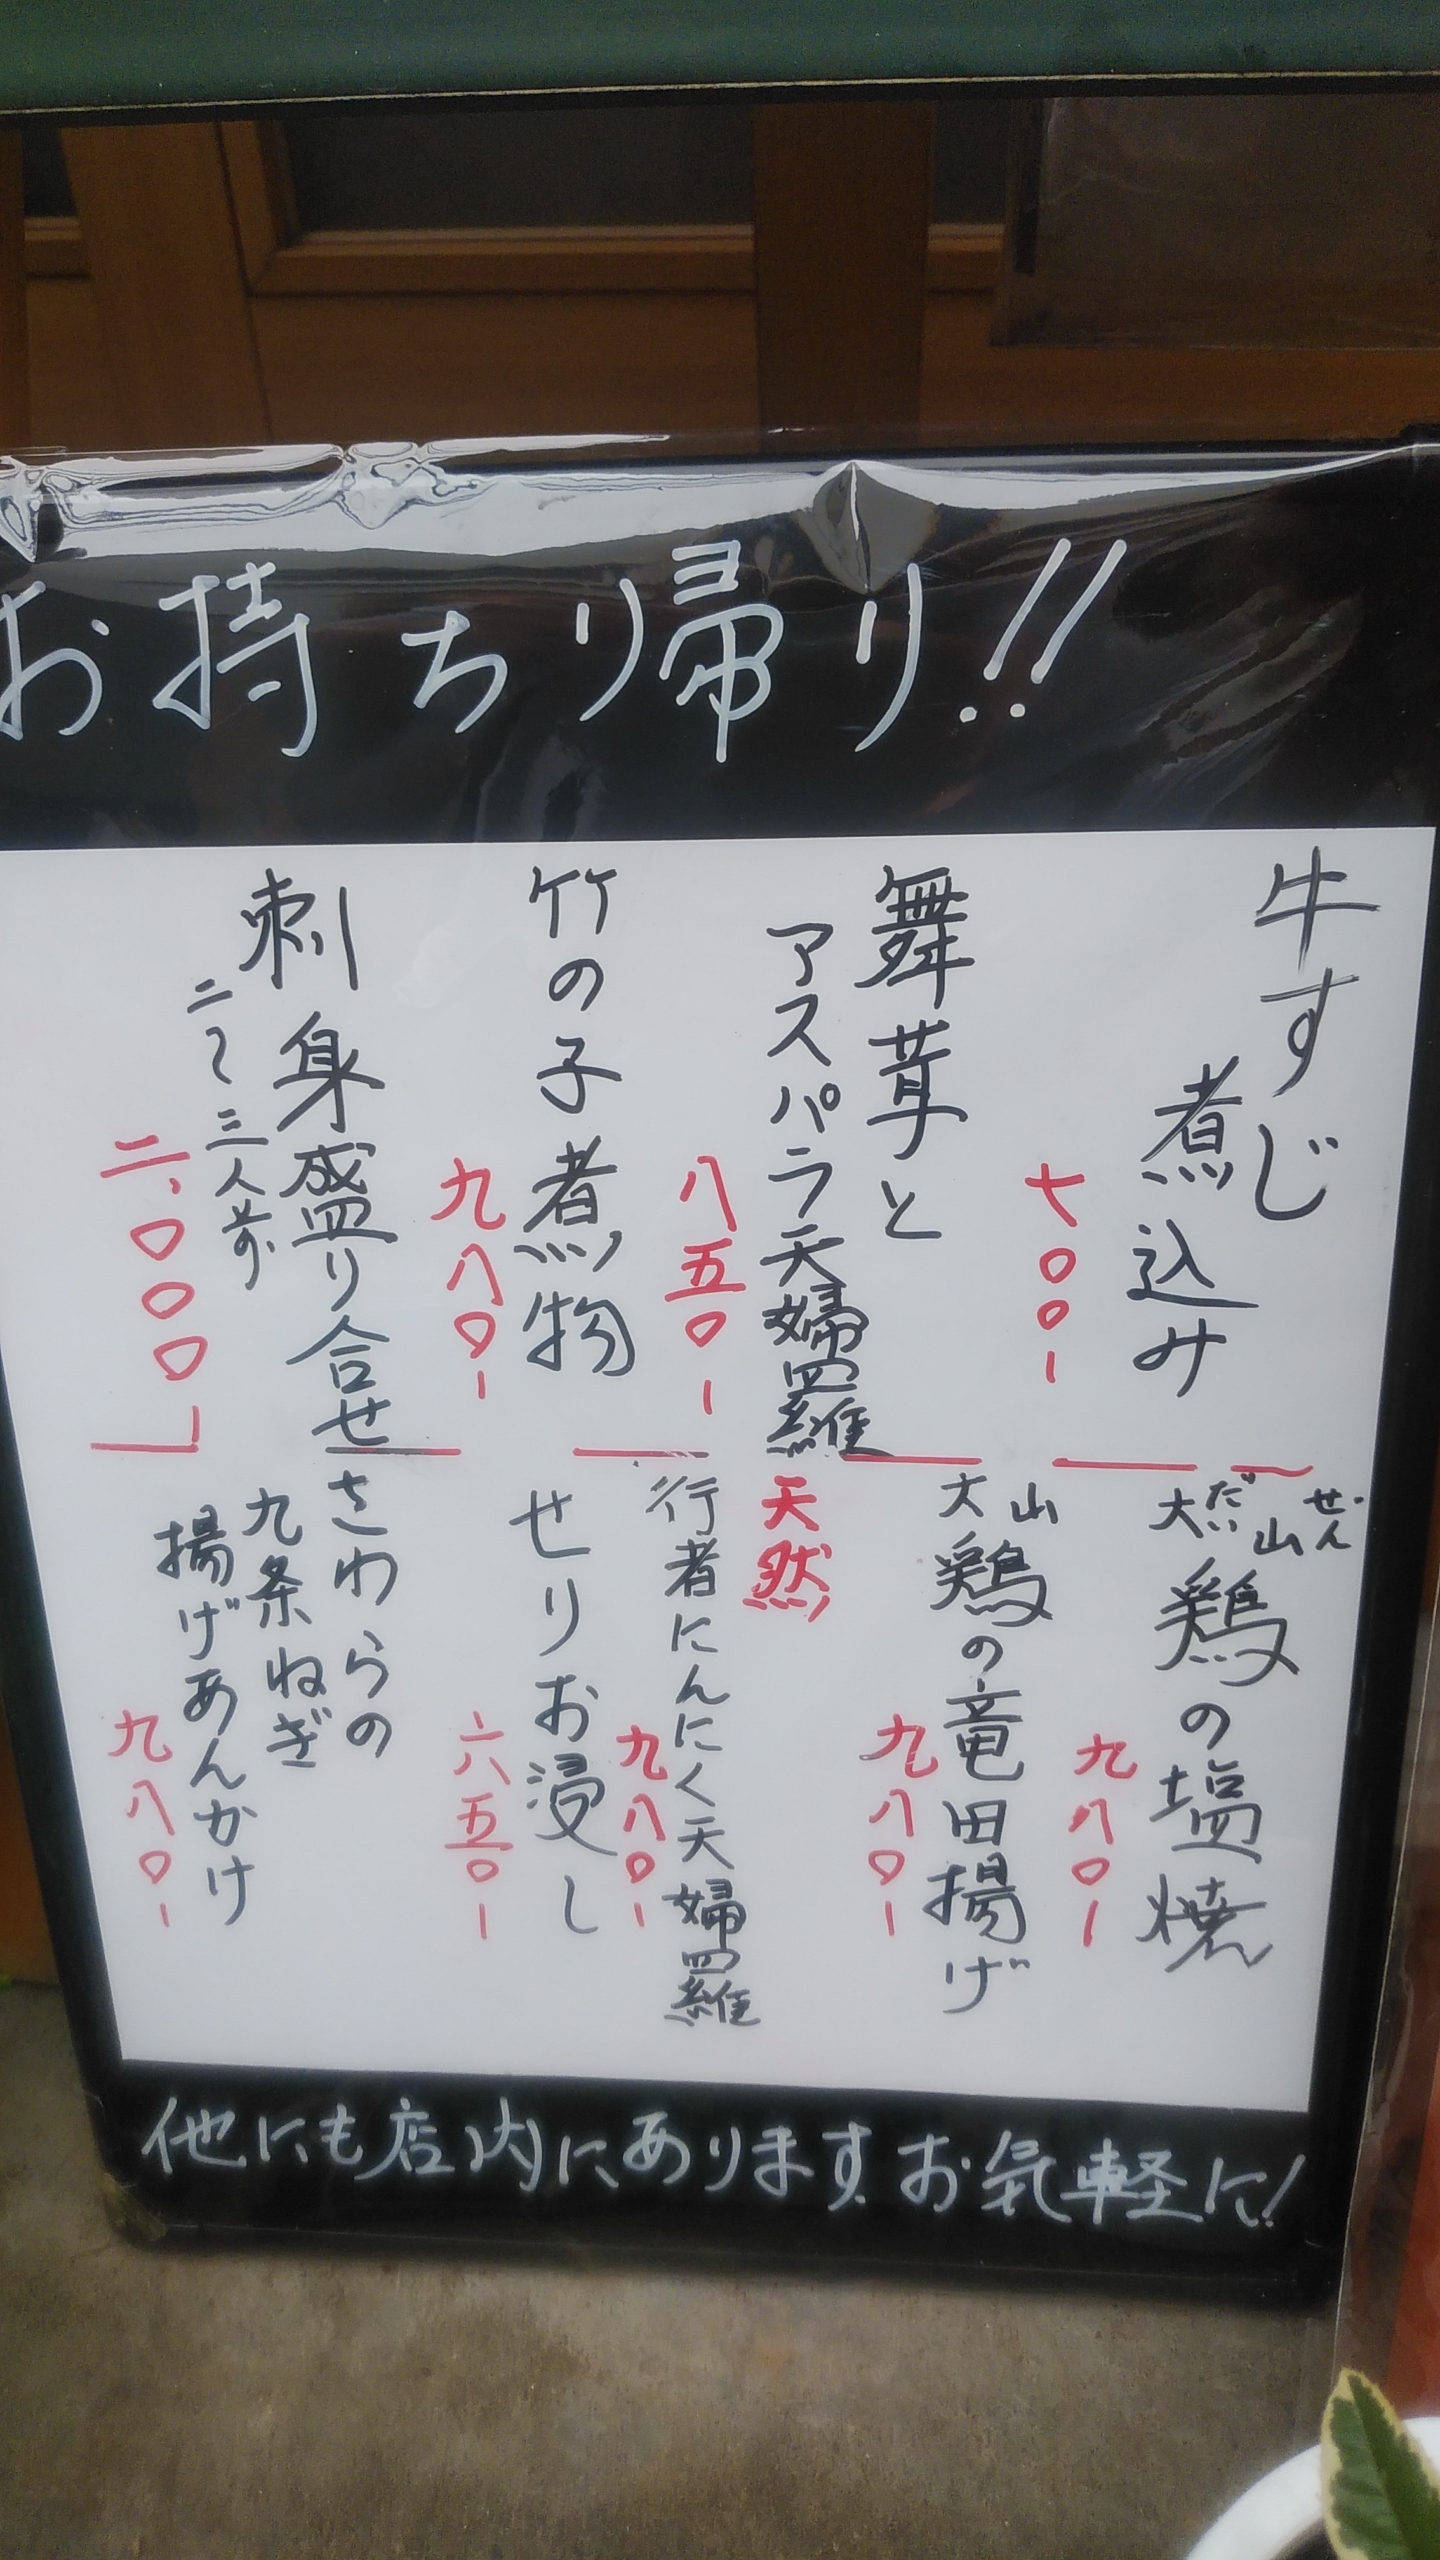 お持ち帰り!!
牛すじ
煮込み
七〇〇-
舞茸と
アスパラ天婦羅
八五〇-
竹の子煮物
九八〇-
刺身盛り合せ
二〜三人前
二、〇〇〇-
大山鶏の塩焼
だいせん
九八〇-
大山鶏の竜田揚げ
九八〇-
天然
行者にんにく天婦羅
九八〇-
せりお浸し
六五〇-
さわらの
九条ねぎ
揚げあんかけ
九八〇-
他にも店内にあります。お気軽に!